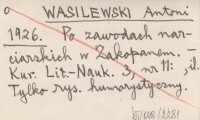 o WASILEWSKI Antoni
1926. Po zawodach nar-
ciarskich w Zakopanem. –
Kur. Lit.-Nauk. 3, nr 11: , il.
Tylko rys. humorystyczny.